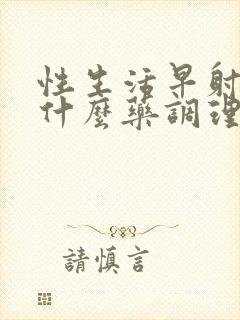 性生活早射
什麼藥調理
請慎言